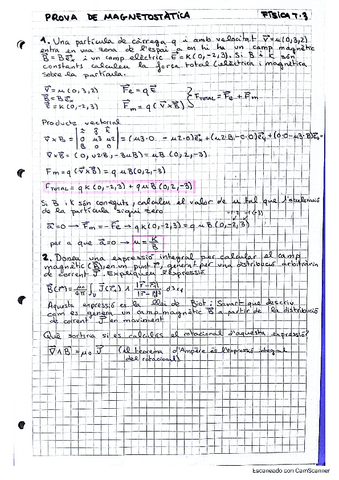 PROVA DE MAGNETOSTÀTICA FÍSICA T.3
1. Una partícula de càrrega q i amb velocitat v⃗ = u(0,3,2)
entra en una zona de l'espai a on hi ha un camp magnètic
B⃗ = B e⃗ i un camp elèctric E⃗ = k(0,-2,3). Si B i k són
constants calculeu la força total (elèctrica i magnètica)
sobre la partícula.
v⃗ = u(0,3,2) F⃗e = q E⃗
B⃗ = B e⃗ F⃗m = q(v⃗×B⃗) } F⃗TOTAL = F⃗e + F⃗m
E⃗ = k(0,-2,3)
Producte vectorial
v⃗×B⃗ = (0, u2·B, -3uB) = uB(0,2,-3)
F⃗m = q(v⃗×B⃗) = q uB(0,2,-3)
F⃗TOTAL = q k(0,-2,3) + q uB(0,2,-3)
Si B i k són coneguts, calculeu el valor de u tal que l'acceleració
de la partícula sigui zero
a⃗ = 0 → F⃗m = -F⃗e → q k(0,-2,3) = q uB(0,2,-3)
per a que a⃗ = 0 → u = k/B
2. Doneu una expressió integral per calcular el camp
magnètic (B⃗) en un punt r⃗, generat per una distribució arbitrària
de corrent J⃗. Expliqueu l'expressió
Aquesta expressió és la llei de Biot i Savart que descriu
com es genera un camp magnètic B⃗ a partir de la distribució
de corrent J⃗ en moviment
Què sortiria si es calculés el rotacional d'aquesta expressió?
∇∧B⃗ = μ₀ J⃗ (el teorema d'Ampère és l'expressió integral
del rotacional)
Escaneado con CamScanner